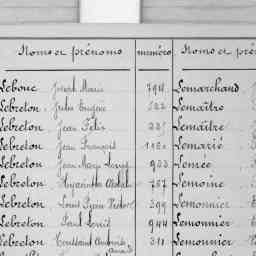 Noms et prénoms numéro Noms et pré
Lebouc Joseph Marie 794 Lemarchand
Lebreton Jules Eugène 522 Lemaître
Lebreton Jean Félix 335 Lemaître
Lebreton Jean François Lemarié
Lebreton Jean Marie 933 Lemée
Lebreton Hyacinthe 757 Lemoine
Lebreton Louis Pierre 399 Lemonnier
Lebreton Paul Louis 944 Lemonnier
Lebreton Toussaint 311 Lemonnier